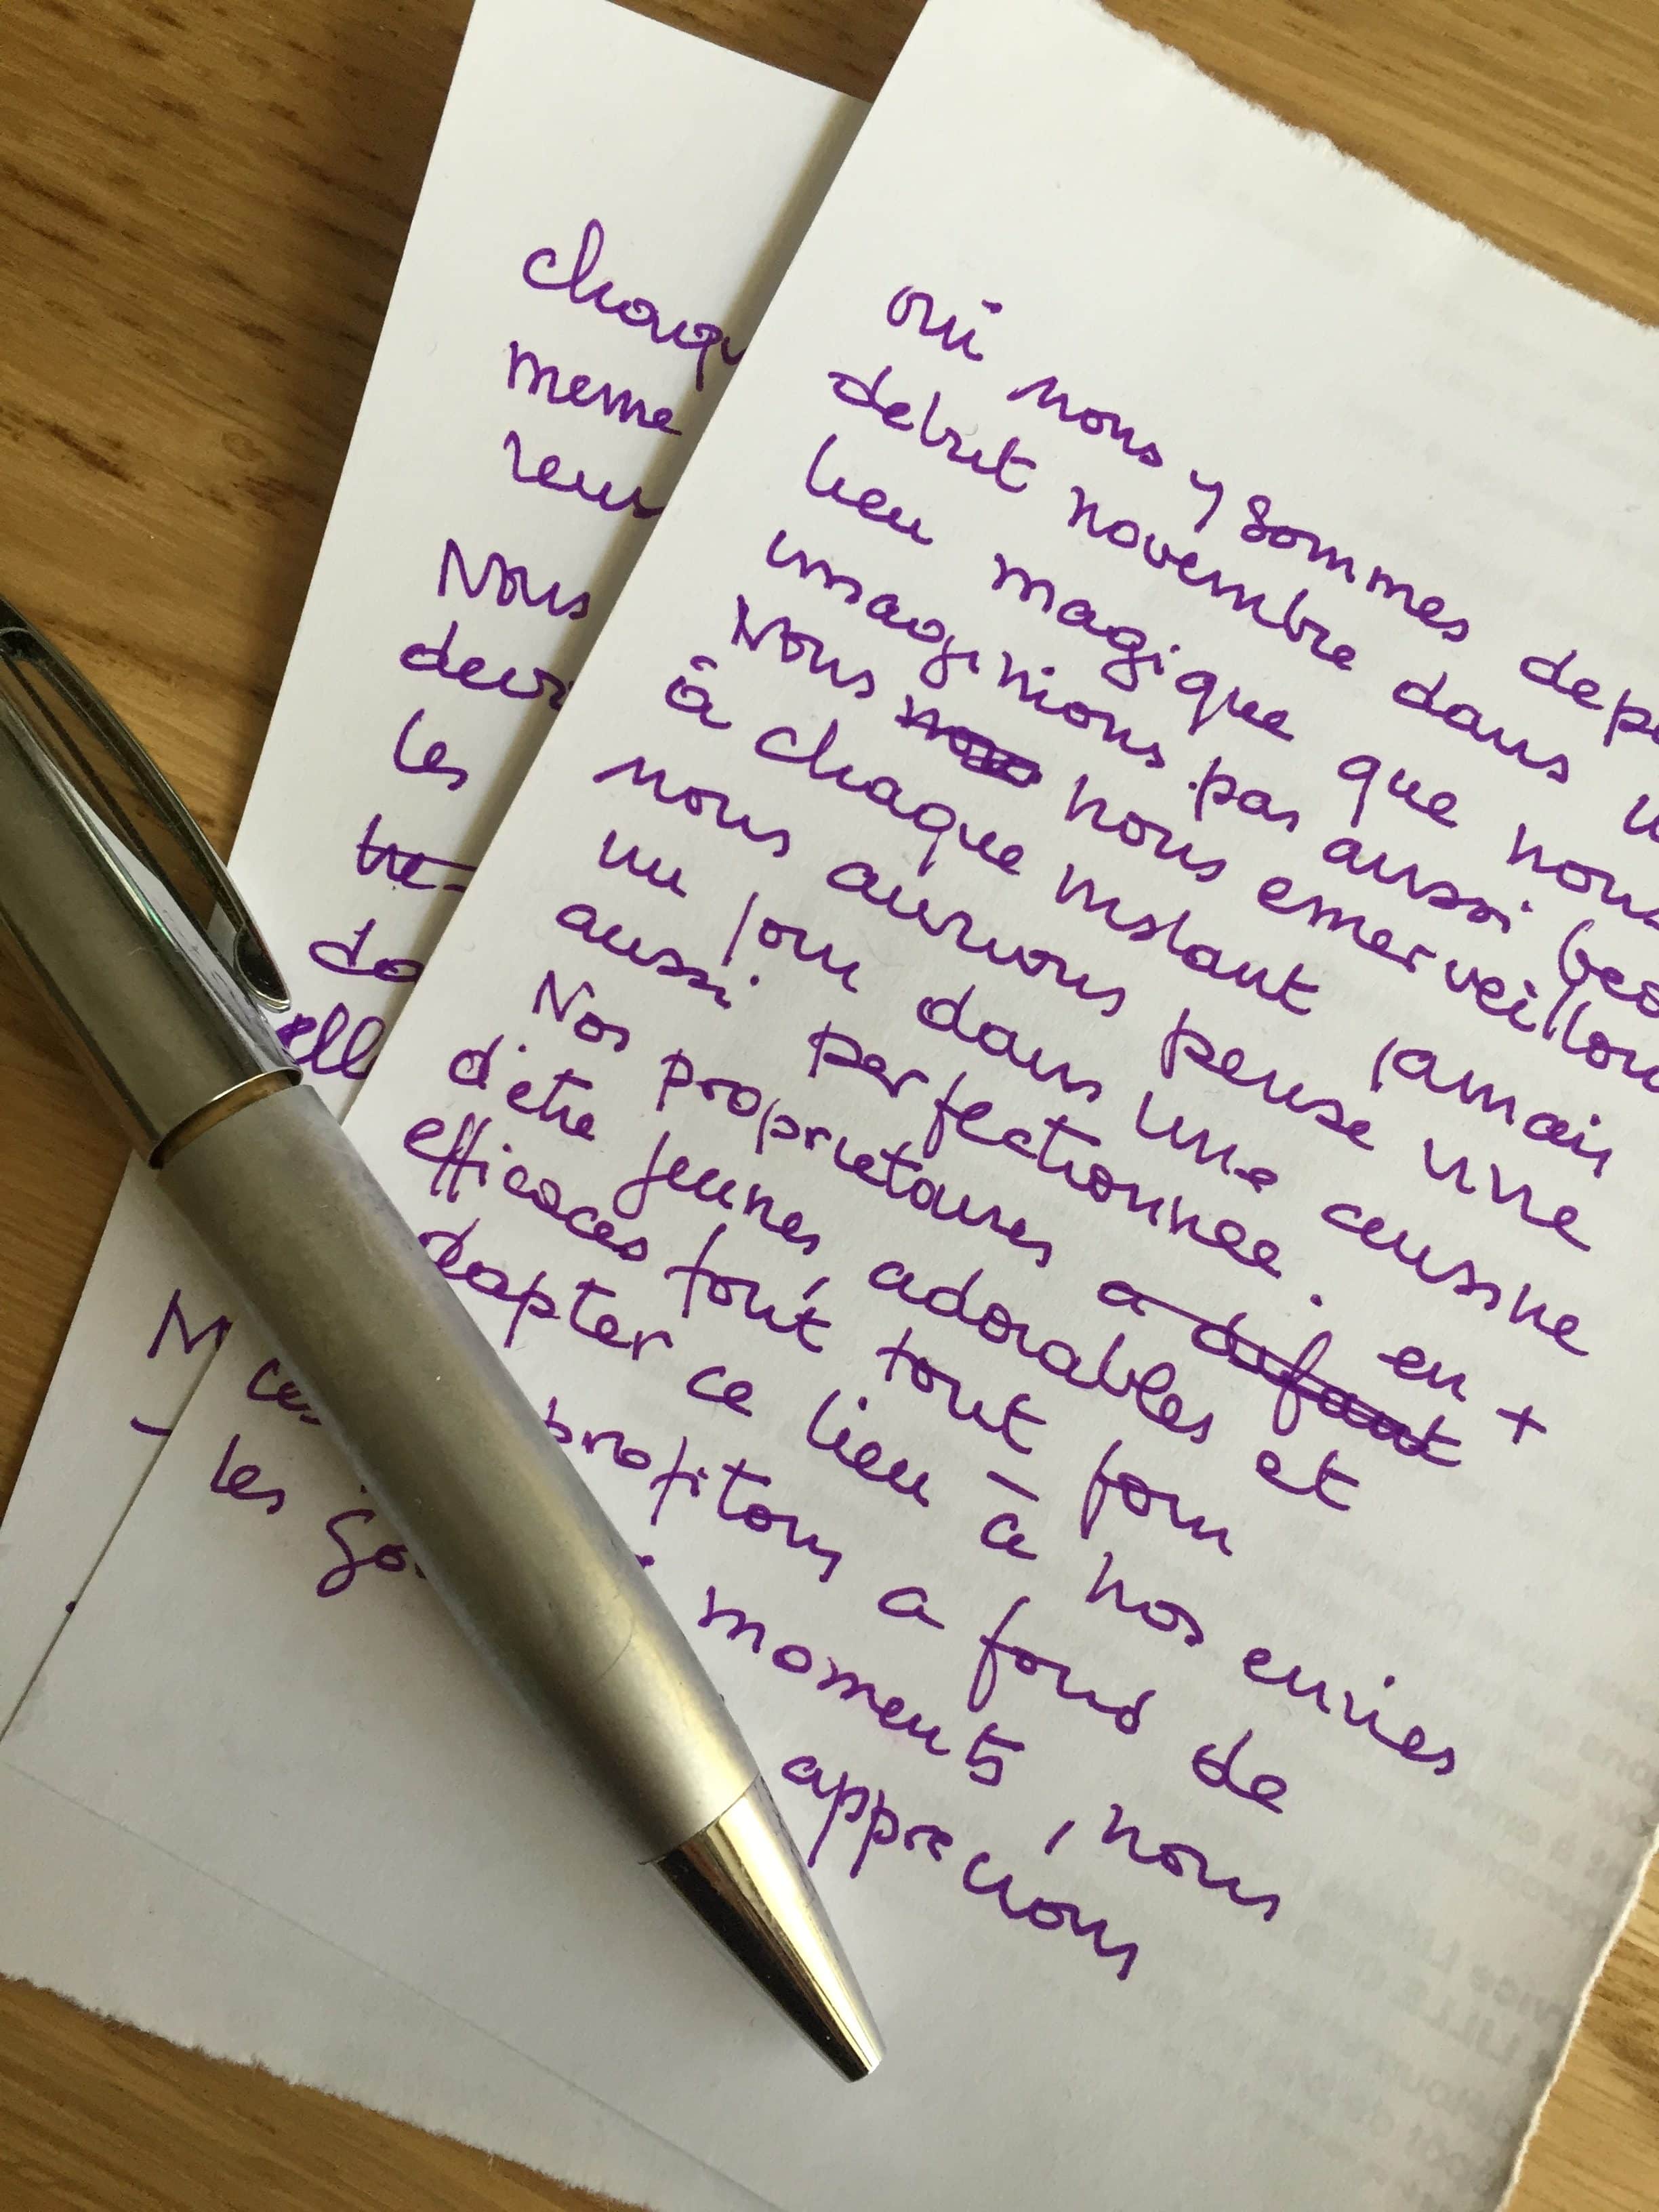 chaqu
meme
Nous
les
ell
oui nous y sommes dep
debut novembre dans u
lieu magique que nous
imaginions pas aussi bea
Nous nous emerveillon
à chaque instant jamais
nous aurions pense vivre
un jour dans une cuisine
aussi perfectionnee.
Nos proprietaires en +
d'etre jeunes, adorables et
efficaces font tout pour
adapter ce lieu à nos envies
profitons a fond de
ces moments, nous
les apprecions